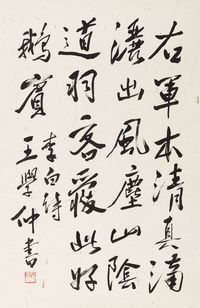 右軍本清真瀟
灑出風塵山陰
道羽客愛此好
鵝賓
李白詩
王學仲書